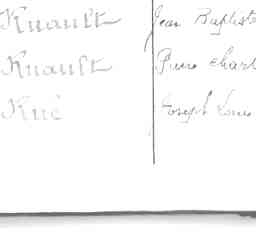 Knault Jean Baptiste
Knault Pierre Charl
Kné Joseph Louis